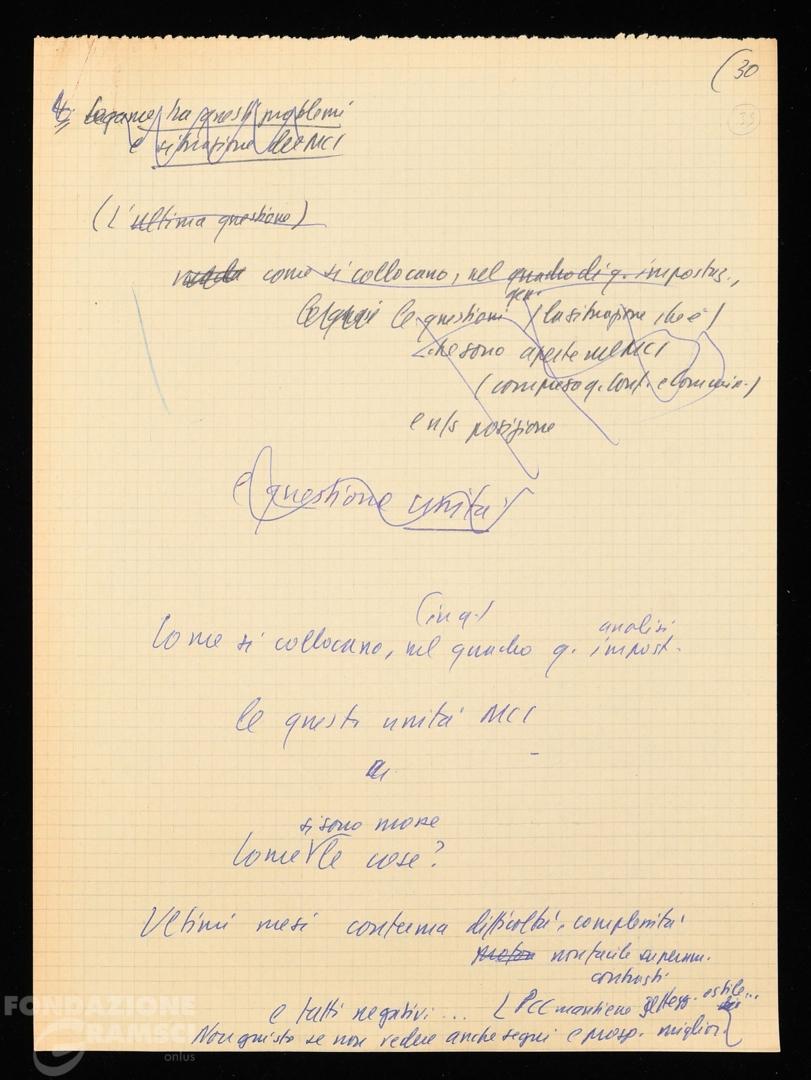 (30
33
4) Legame tra questi problemi
e situazione del MCI
(L'ultima questione)
come si collocano, nel quadro di q. impostaz.,
gen.
le questioni / la situazione che è /
che sono aperte nel MCI
(compreso q. Conf. e Comunis.)
e n/s posizione
e questione unità
(in q.)
analisi
Come si collocano, nel quadro q. impost.
le questi unità MCI
si sono mosse
Come le cose?
Ultimi mesi conferma difficoltà, complessità
non facile superam.
contrasti
e fatti negativi... PCC mantiene attegg. ostile...
Non giusto se non vedere anche segni e prosp. migliori
FONDAZIONE
GRAMSCI
onlus